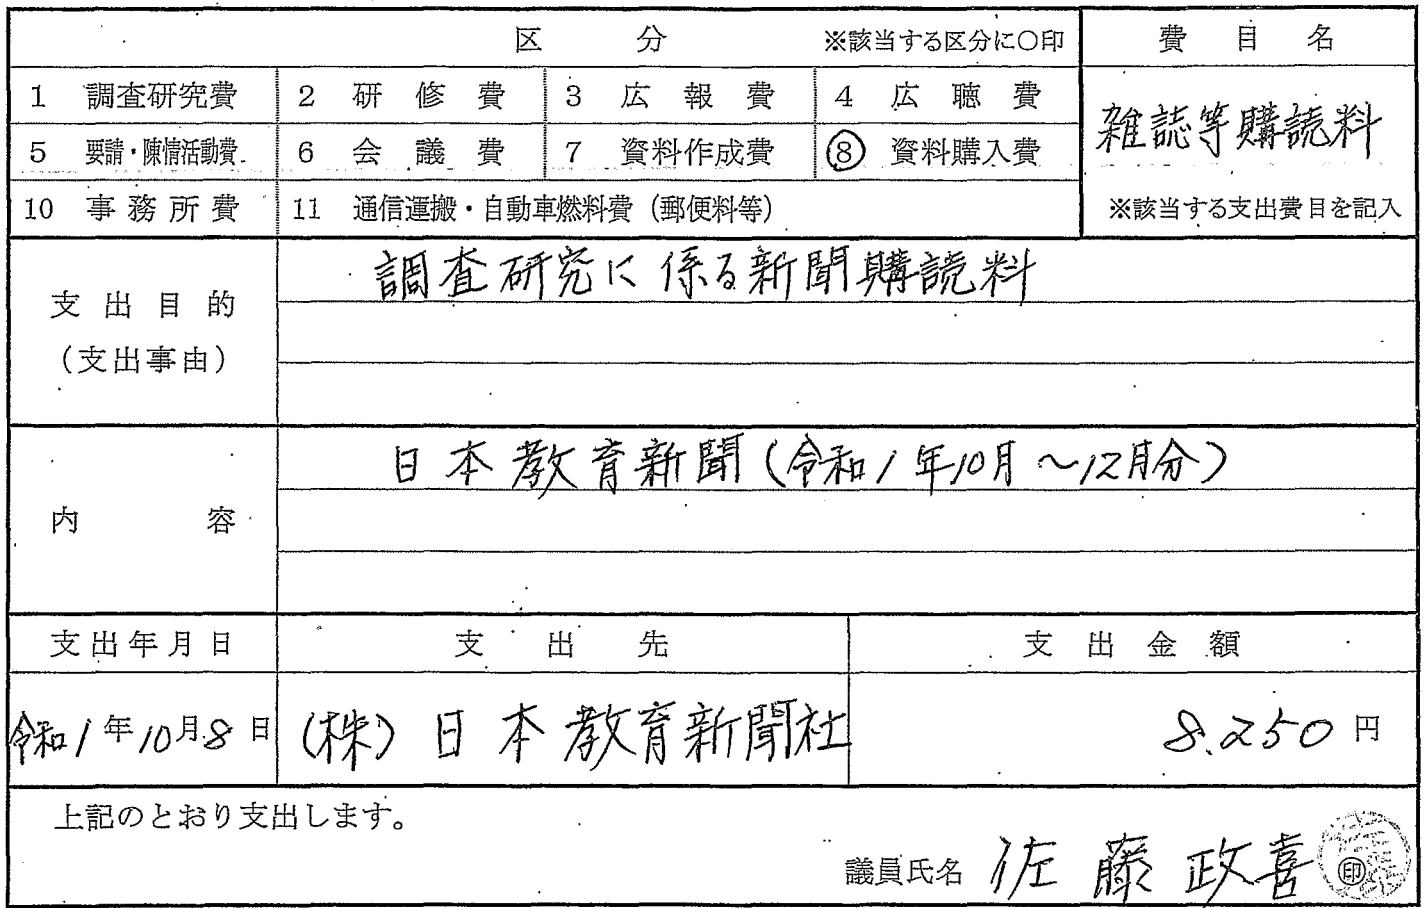 区 分 ※該当する区分に〇印 費 目 名
1 調査研究費 2 研 修 費 3 広 報 費 4 広 聴 費
雑誌等購読料
5 要請・陳情活動費 6 会 議 費 7 資料作成費 ⑧ 資料購入費
10 事 務 所 費 11 通信運搬・自動車燃料費（郵便料等） ※該当する支出費目を記入
調査研究に係る新聞購読料
支 出 目 的
（支出事由）
日本教育新聞（令和1年10月～12月分）
内 容
支出年月日 支 出 先 支 出 金 額
令和1年10月8日 （株）日本教育新聞社 8.250円
上記のとおり支出します。
議員氏名 佐藤政喜 ㊞